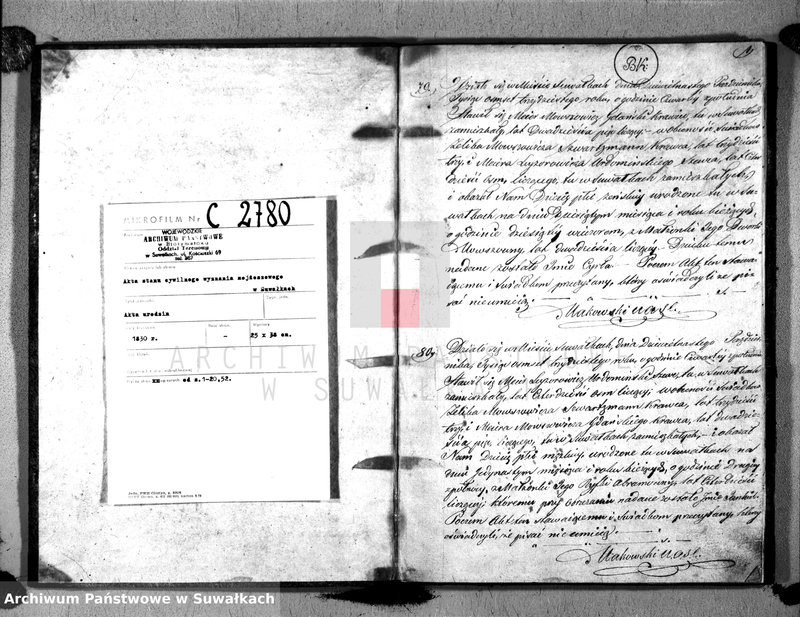 MIKROFILM Nr C 2780
WOJEWÓDZKIE
ARCHIWUM PAŃSTWOWE
w Białymstoku
Oddział Terenowy
w Suwałkach, ul. Kościuszki 69
Akta stanu cywilnego wyznania mojżeszowego
w Suwałkach
Akta urodzin
1830 r.
-
25 x 38 cm.
od s. 1-20, 52.
BK.
1
79.
Działo się w Mieście Suwałkach dnia Dziewiętnastego Października
Tysiąc osmset trzydziestego roku, o godzinie Czwartey z południa
Stawił się Mowszowicz Gdański Krawiec, tu w Suwałkach
zamieszkały, lat Dwadzieścia pięć liczący, w obecności Świadków
Zelika Mowszowicza Szwartzmann Krawca, lat trzydzieści
trzy i Meiera Leyzorowicza Wodominskiego Szewca, lat Czter-
dzieści osm liczącego, tu w Suwałkach zamieszkałych,
i okazał Nam Dziecię płci żeńskiey urodzone tu w Su-
wałkach na dniu Dziesiątym miesiąca i roku bieżących,
o godzinie dziesiątey wieczorem, z Małżonki Jego
Mowszowny, lat dwadzieścia liczącey. Dziecku temu
nadane zostało Imie Cyrla. Poczem Akt ten Stawa-
iącemu i Świadkom przeczytany, którzy oświadczyli że pi-
sać nieumieią.
Makowski
80.
Działo się w Mieście Suwałkach, dnia Dziewiętnastego Paździer-
nika, Tysiąc osmset trzydziestego roku, o godzinie Czwartey z południa
Stawił się Leyzorowicz Wodominski Szewc, tu w Suwałkach
zamieszkały, lat Czterdzieści osm liczący, w obecności Świadków
Zelika Mowszowicza Szwartzmann Krawca, lat trzydzieści
trzy i Mowszowicza Gdańskiego Krawca, lat dwadzie-
ścia pięć liczącego, tu w Suwałkach zamieszkałych, i okazał
Nam Dziecię płci męzkiey, urodzone tu w Suwałkach na
dniu Jedynastym miesiąca i roku bieżących, o godzinie Drugiey
z południa, z Małżonki Jego Abramowny, lat Czterdzieści
liczącey; któremu przy Obrzezaniu nadane zostało Imie
Poczem Akt ten Stawaiącemu i Świadkom przeczytany, którzy
oświadczyli, że pisać nieumieią.
Makowski
ARCHIWUM PAŃSTWOWE
W SUWAŁKACH
Archiwum Państwowe w Suwałkach